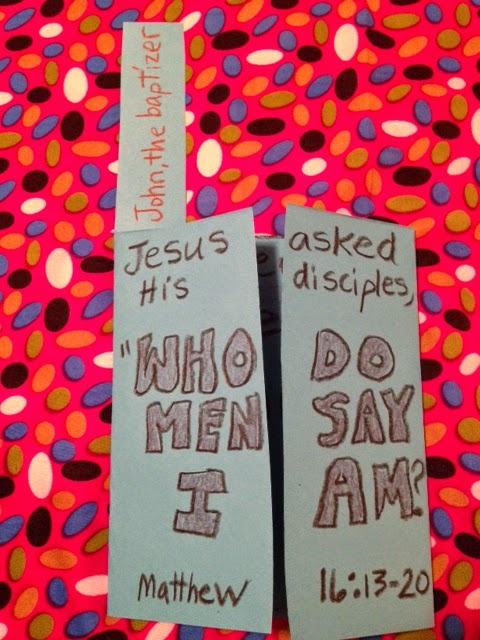 John, the baptizer
Jesus asked
His disciples,
"WHO DO
MEN SAY
I AM?
Matthew 16:13-20